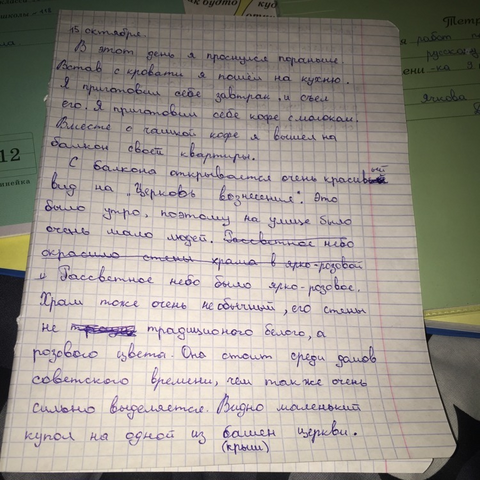 как будто
куд
Тетр
работ по
русско
ени -ка 9
Яинова
12
инейка
15 октября.
В этот день я проснулся пораньше.
Встав с кровати я пошёл на кухню.
Я приготовил себе завтрак и съел
его. Я приготовил себе кофе с молоком.
Вместе с чашкой кофе я вышел на
балкон своей квартиры.
С балкона открывается очень красивый
вид на "Церковь вознесения". Это
было утро, поэтому на улице было
очень мало людей. Рассветное небо
окрасило стены храма в ярко-розовой
Рассветное небо было ярко-розовое.
Храм тоже очень необычный, его стены
не традиционого белого, а
розового цвета. Она стоит среди домов
советского времени, чем так же очень
сильно выделяется. Видно маленький
купол на одной из башен церкви.
(крыш)